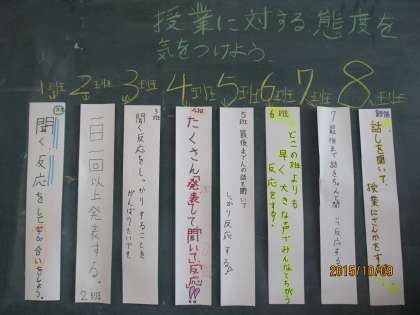 授業に対する態度を
気をつけよう。
1班 2班 3班 4班 5班 6班 7班 8班
聞く反応をして
しよう。
一日一回以上発表する。
2班
3班
聞く反応をしっかりすることを
がんばりたいです
4班
たくさん発表して聞いて反応!!
5班
最後まで人の話を聞いて
しっかり反応する
6班
どこの班よりも
早く大きな声でみんなとちがう
反応をする!
7
最後まで話をちゃんと聞
反応する
話しを聞いて、
授業にさんかをする
2015/10/09